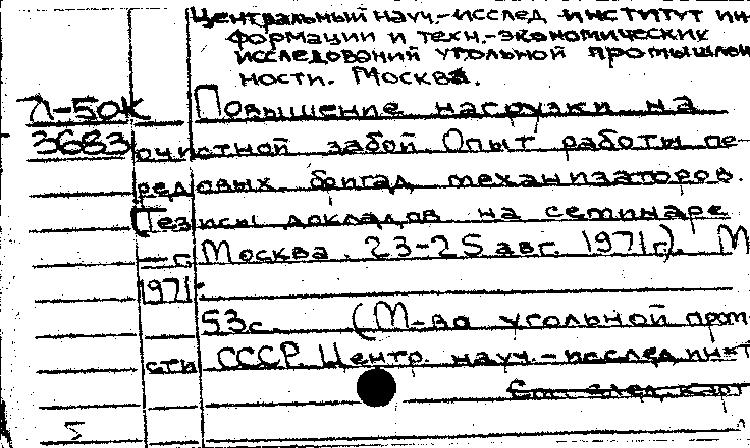 Центральный науч.-исслед институт ин-
формации и техн.-экономических
исследований угольной промышлен
ности. Москва.
Л-50К Повышение нагрузки на
3683 очистной забой. Опыт работы пе-
редовых бригад механизаторов.
(Тезисы докладов на семинаре
— г. Москва. 23-25 авг. 1971г). М
1971.
53с. (М-во угольной пром-
сти СССР. Центр. науч.-исслед. ин-т
См. след. карт